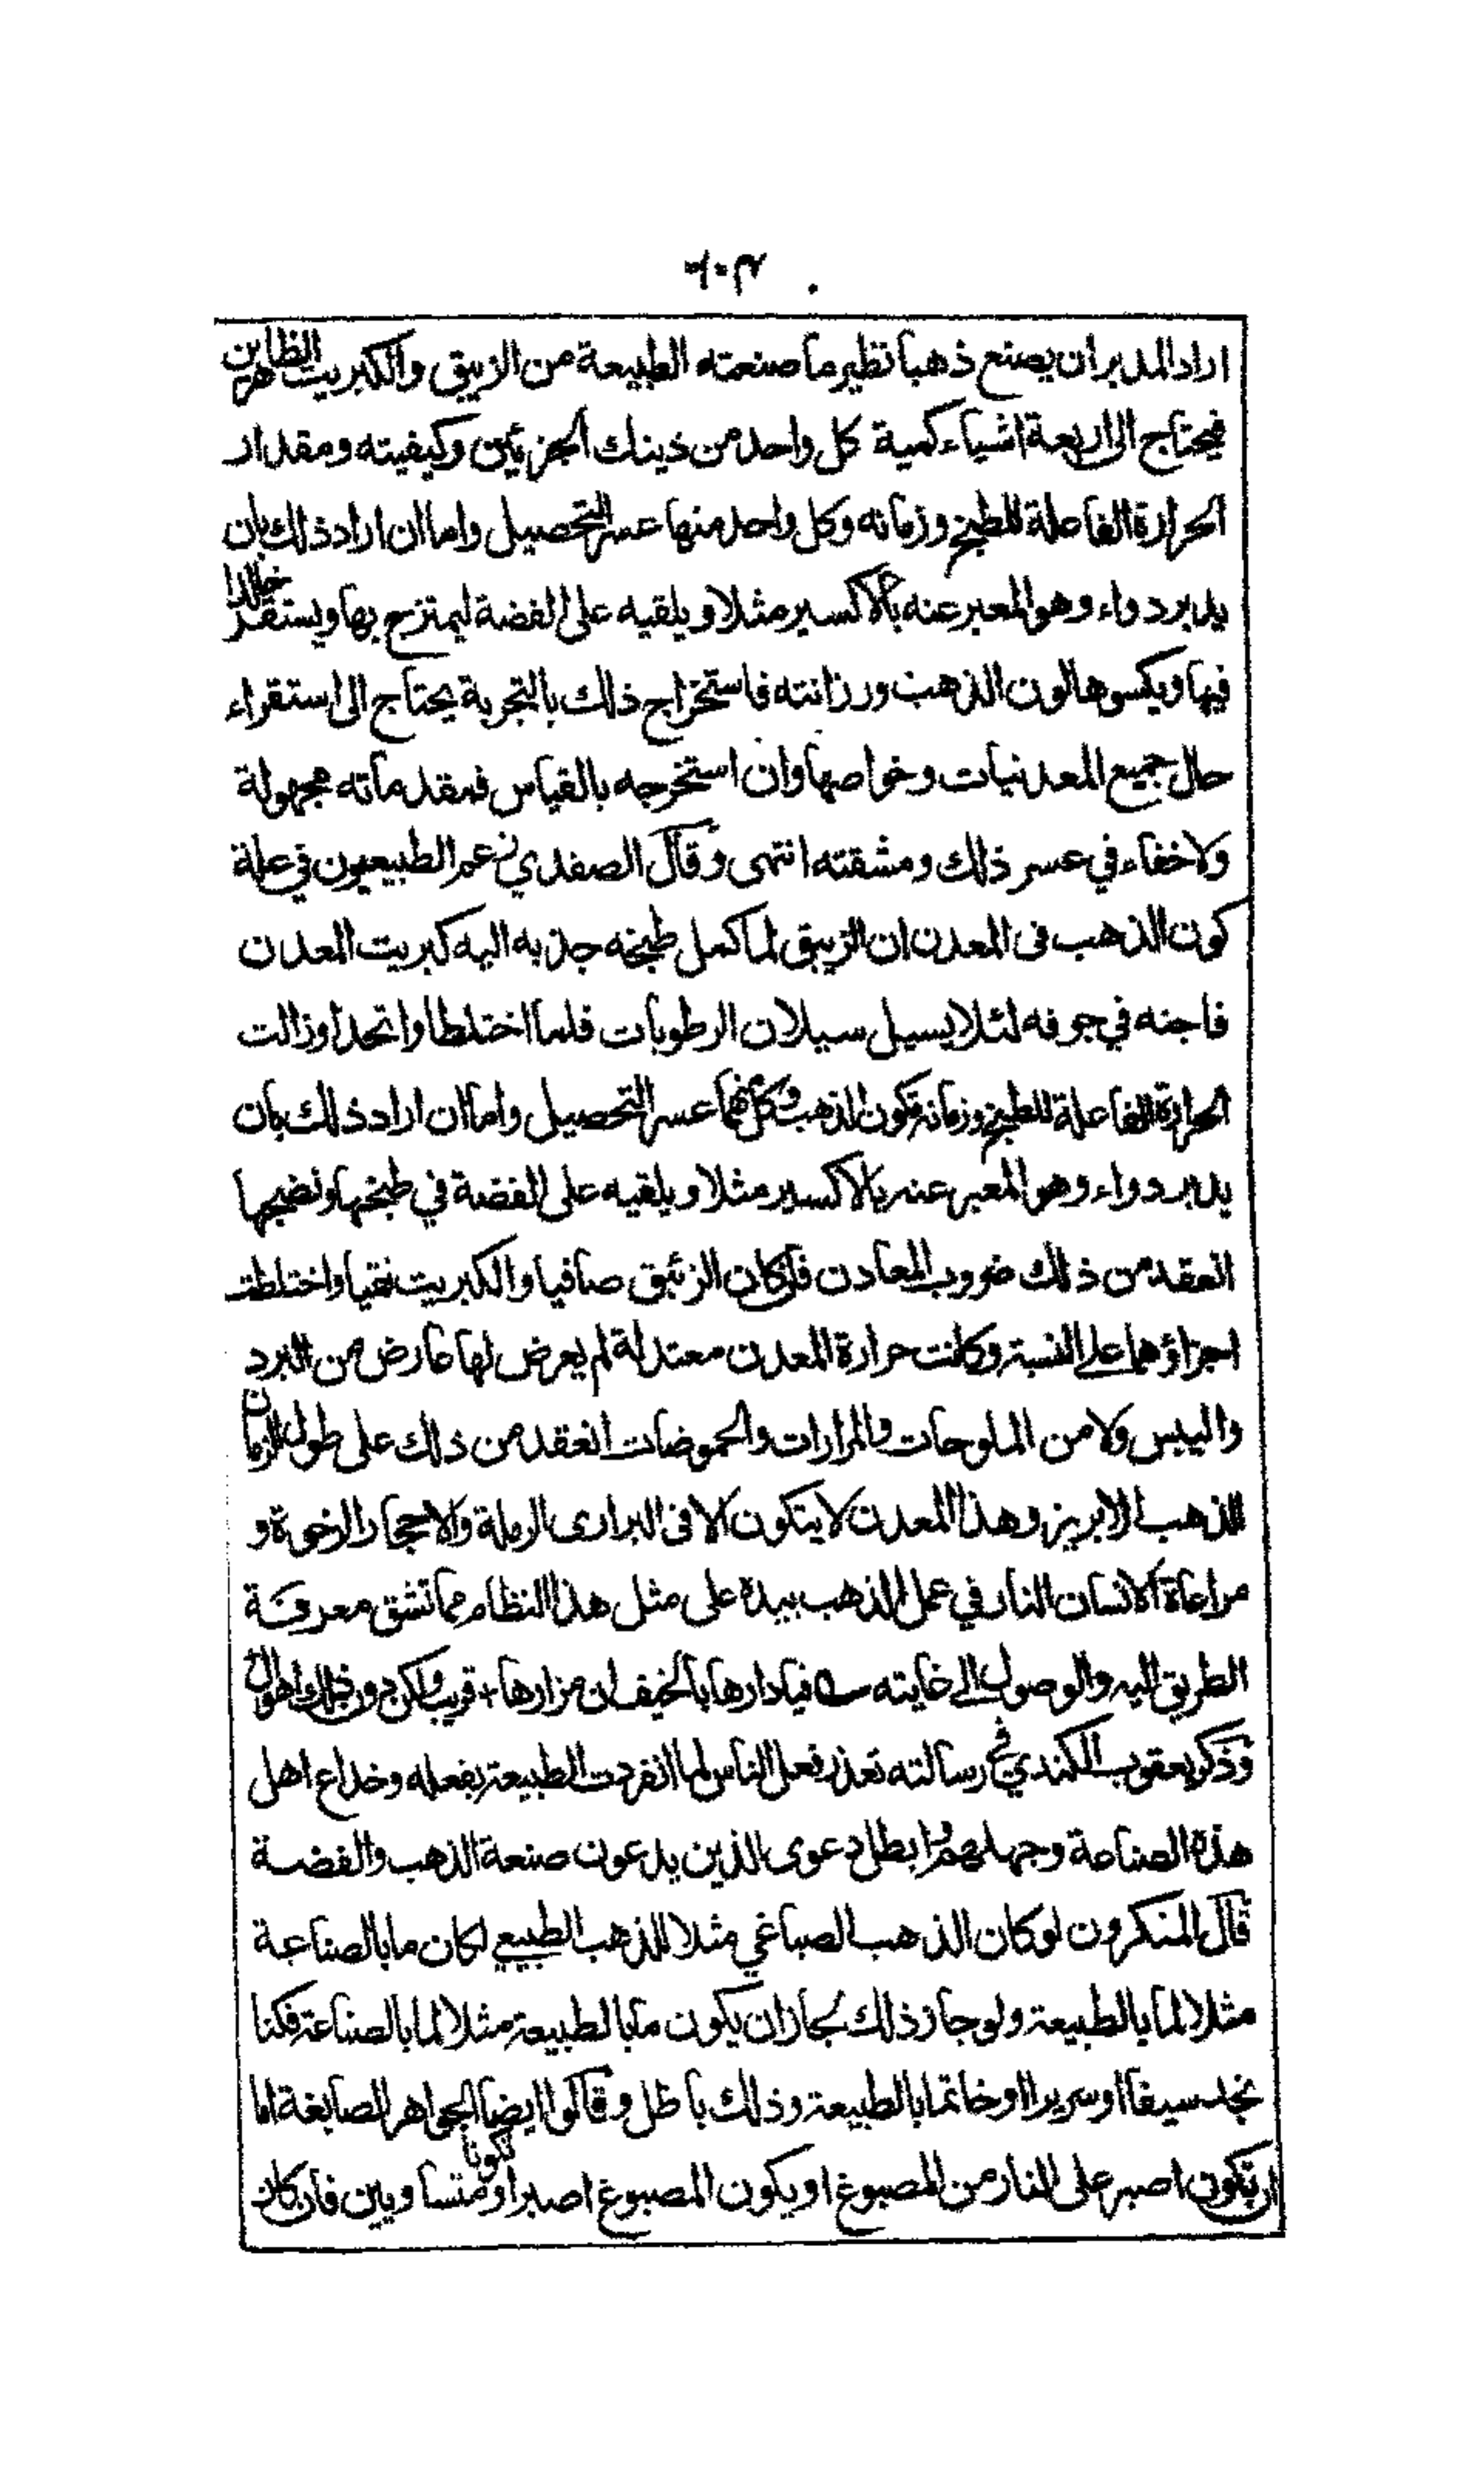 اراد المدبر ان يصنع ذهبا نظير ما صنعته الطبيعة من الزيبق والكبريت الظاهرين
فيحتاج الى اربعة اشياء كمية كل واحد من ذينك الجزئين وكيفيته ومقدار
الحرارة الفاعلة للطبخ وزمانه وكل واحد منها عسر التحصيل واما ان اراد ذلك بان
يدبر دواء وهو المعبر عنه بالاكسير مثلا ويلقيه على الفضة ليمتزج بها ويستقر خالدا
فيها ويكسوها لون الذهب ورزانته فاستخراج ذلك بالتجربة يحتاج الى استقراء
حال جميع المعدنيات وخواصها وان استخرجه بالقياس فمقدماته مجهولة
ولا خفاء في عسر ذلك ومشقته انتهى وقال الصفدي زعم الطبيعيون في علة
كون الذهب فى المعدن ان الزيبق لما كمل طبخه جذبه اليه كبريت المعدن
فاجنه في جوفه لئلا يسيل سيلان الرطوبات فلما اختلطا واتحدا وزالت
الحرارة الفاعلة للطبخ وزمانه تكون الذهب وكل منهما عسر التحصيل واما ان اراد ذلك بان
يدبر دواء وهو المعبر عنه بالاكسير مثلا ويلقيه على الفضة في طبخها ونضجها
انعقد من ذلك ضروب المعادن فان كان الزئبق صافيا والكبريت نقيا واختلطت
اجزاؤهما على النسبة وكانت حرارة المعدن معتدلة لم يعرض لها عارض من البرد
واليبس ولا من الملوحات والمرارات والحموضات انعقد من ذلك على طول الزمان
الذهب الابريز وهذا المعدن لا يتكون الا فى البرارى الرملة والاحجار الرخوة و
مراعاة الانسان النار في عمل الذهب بيده على مثل هذا النظام مما تشق معرفة
الطريق اليه والوصول الى غايته فيا دارها بالخيف ان مزارها قريب ولكن دون ذلك اهوال
وذكر يعقوب الكندي في رسالته تعذر فعل الناس لما انفردت الطبيعة بفعله وخداع اهل
هذه الصناعة وجهلهم وابطل دعوى الذين يدعون صنعة الذهب والفضة
قال المنكرون لو كان الذهب الصباغي مثلا للذهب الطبيعي لكان ما بالصناعة
مثلا لما بالطبيعة ولو جاز ذلك لجاز ان يكون ما بالطبيعة مثلا لما بالصناعة فكنا
نجد سيفا او سريرا او خاتما بالطبيعة وذلك باطل وقالوا ايضا الجواهر الصابغة اما
ان تكون اصبر على النار من المصبوغ او يكون المصبوغ اصبر او تكونا متساويين فان كان